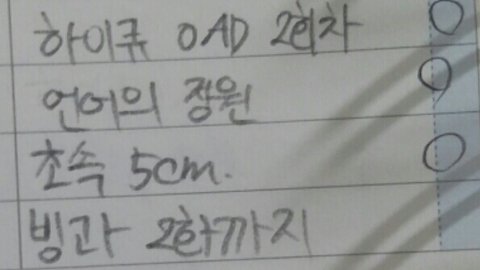 하이큐 OAD 2회차 O
언어의 정원 O
초속 5cm. O
빙과 2화까지